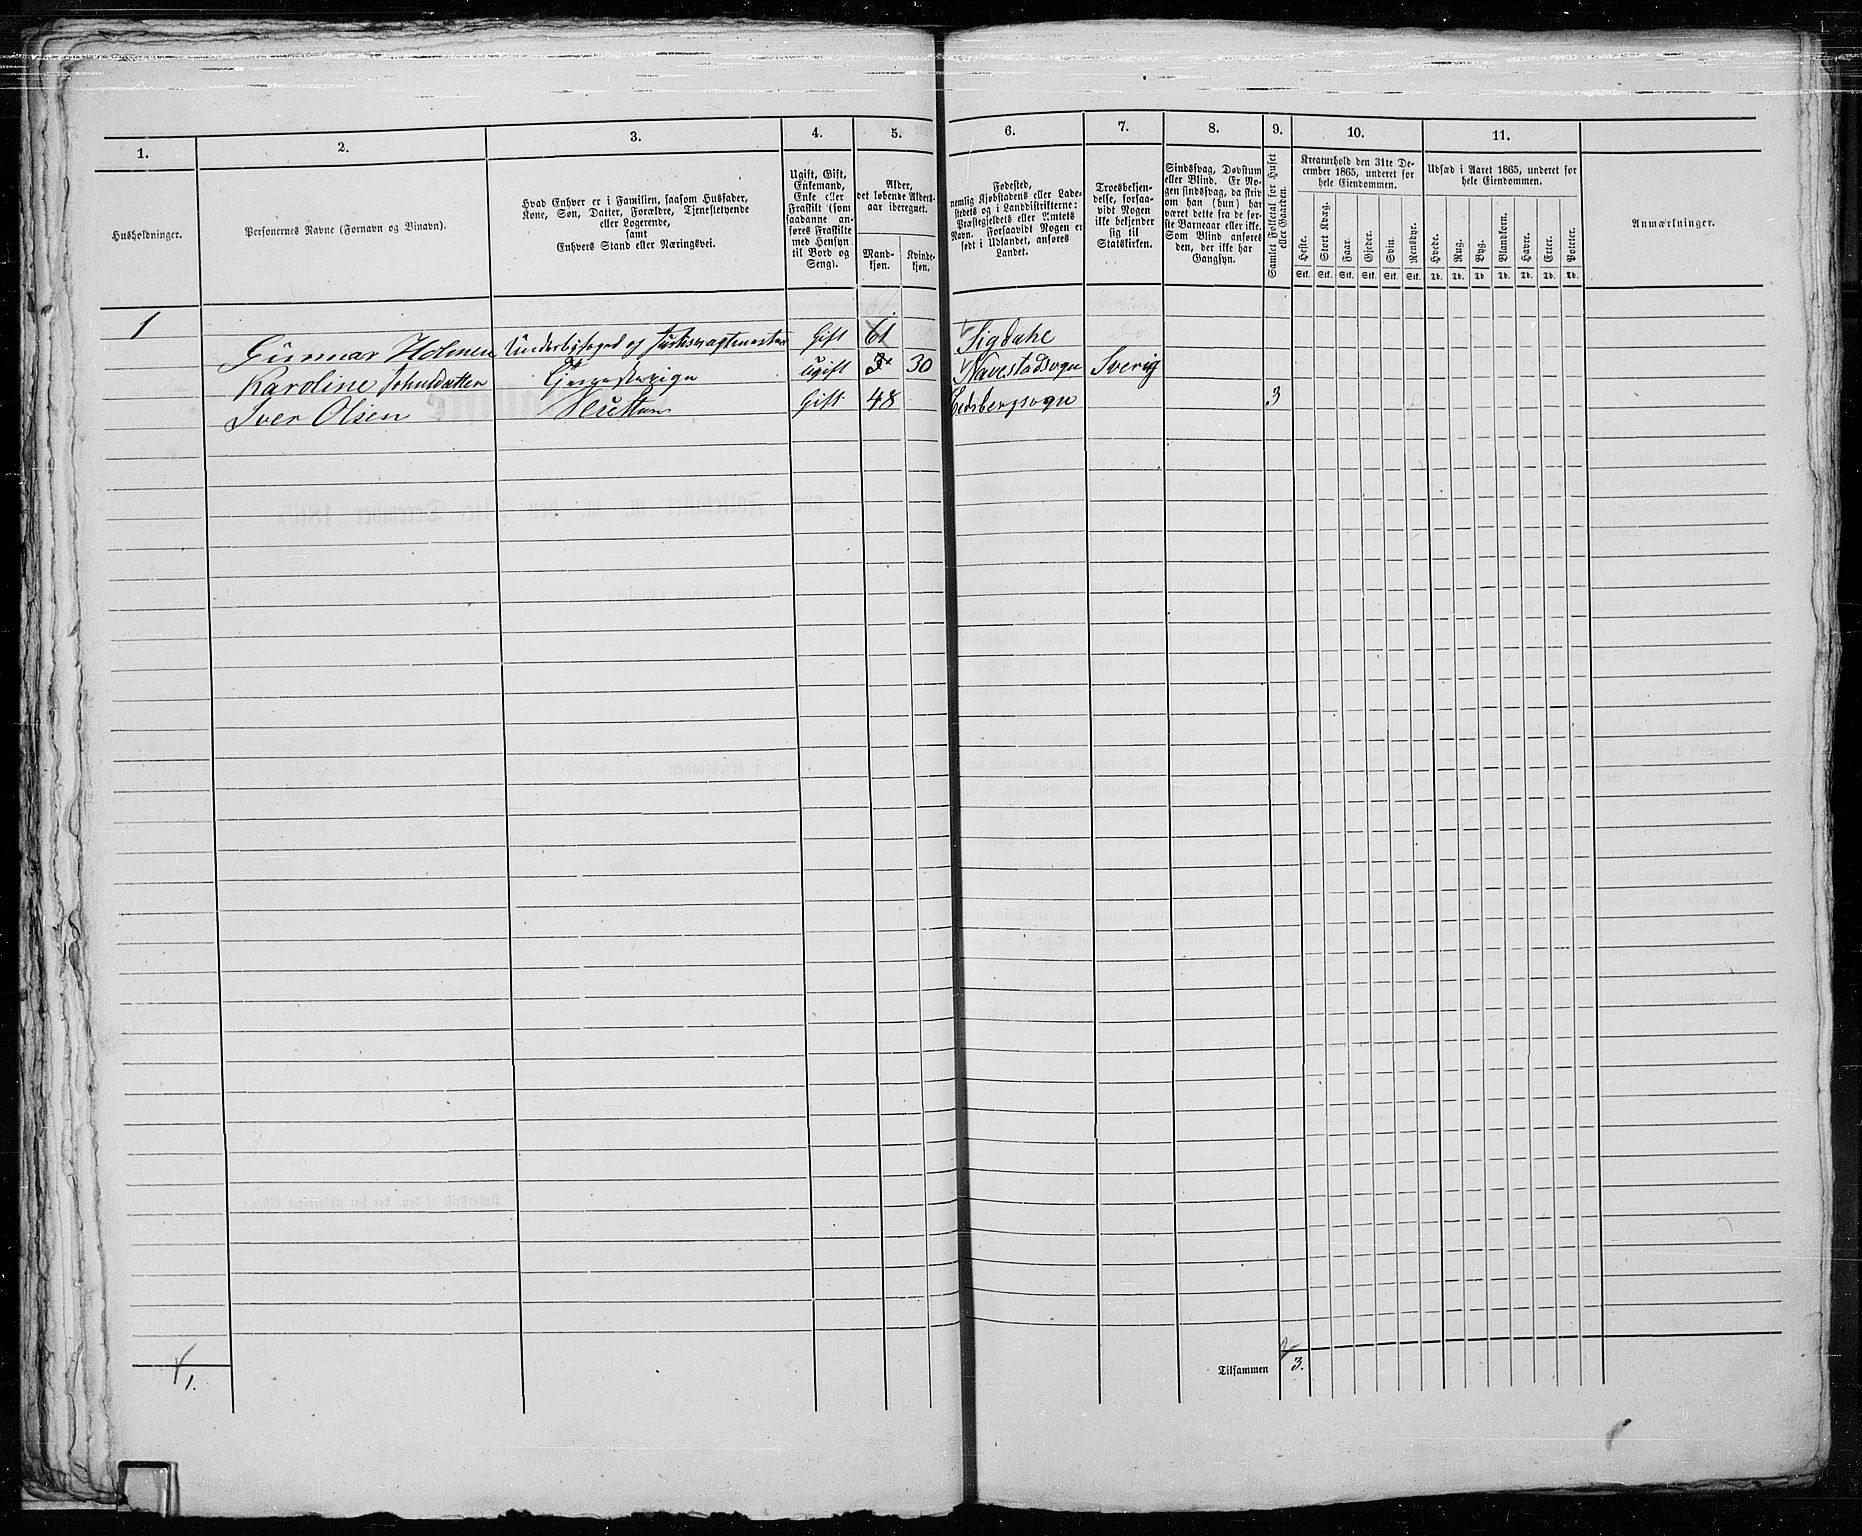 1. 2. 3. 4. 5. 6. 7. 8. 9. 10. 11.
Husholdninger.
Personernes Navne (Fornavn og Binavn).
Hvad Enhver er i Familien, saasom Husfader,
Kone, Søn, Datter, Forældre, Tjenestetyende
eller Logerende,
samt
Enhvers Stand eller Næringsvei.
Ugift, Gift,
Enkemand,
Enke eller
Fraskilt (som
saadanne an-
føres Fraskilte
med Hensyn
til Bord og
Seng).
Alder,
det løbende Alders-
aar iberegnet.
Mand-
kjøn.
Kvinde-
kjøn.
Fødested,
nemlig Kjøbstadens eller Lade-
stedets og i Landdistrikterne:
Præstegjeldets eller Amtets
Navn. Forsaavidt Nogen er
født i Udlandet, anføres
Landet.
Troesbekjen-
delse, forsaa-
vidt Nogen
ikke bekjender
sig til
Statskirken.
Sindssvag, Døvstum
eller Blind. Er No-
gen sindssvag, da skriv
om han (hun) har
været dette fra de før-
ste Barneaar eller ikke.
Som Blind anføres
den, der ikke har
Gangsyn.
Samlet Folketal for Huset
eller Gaarden.
Kreaturhold den 31te De-
cember 1865, underet for
hele Eiendommen.
Heste. Stort Kvæg. Faar. Gjeder. Svin. Rensdyr.
Stk. Stk. Stk. Stk. Stk. Stk.
Udsæd i Aaret 1865, underet for
hele Eiendommen.
Hvede. Rug. Byg. Blandkorn. Havre. Erter. Poteter.
Td. Td. Td. Td. Td. Td. Td.
Anmærkninger.
1 Gunnar Holmen Underbyfoged og Gift 61 Sigdahl
Karoline Johnsdatter ugift 30 Navestadsogn Sverig
Iver Olsen Gift 48 Eidsbergsogn 3
1. Tilsammen 3.